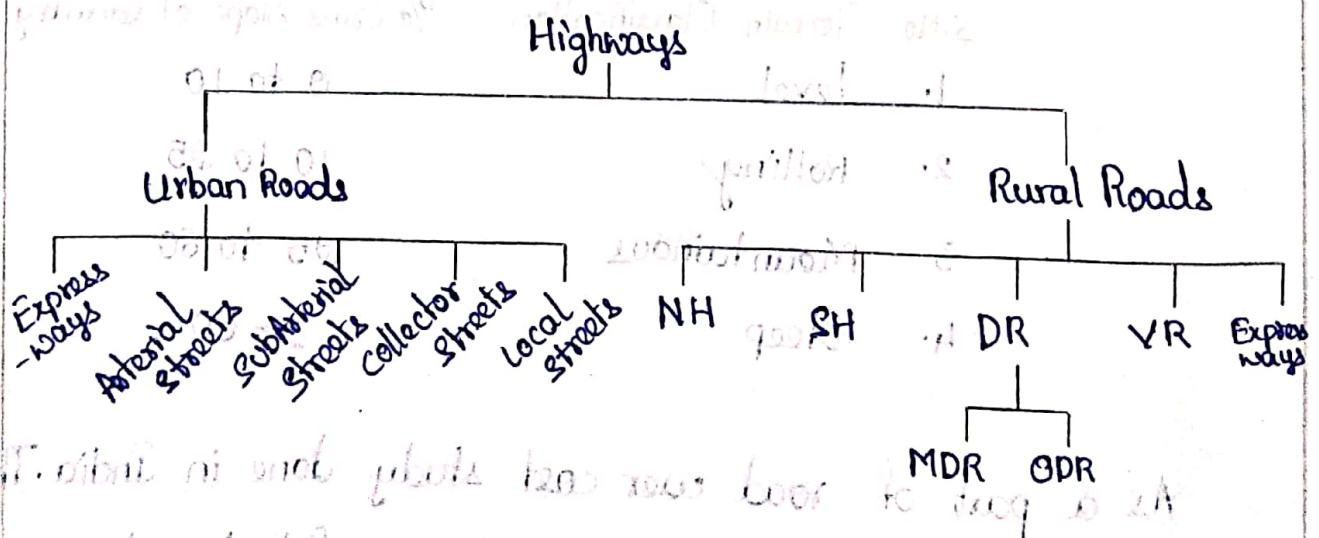 Highways
Urban Roads
Rural Roads
Express
-ways
Arterial
Streets
SubArterial
Streets
Collector
Streets
Local
Streets
NH
SH
DR
VR
Express
ways
MDR
ODR